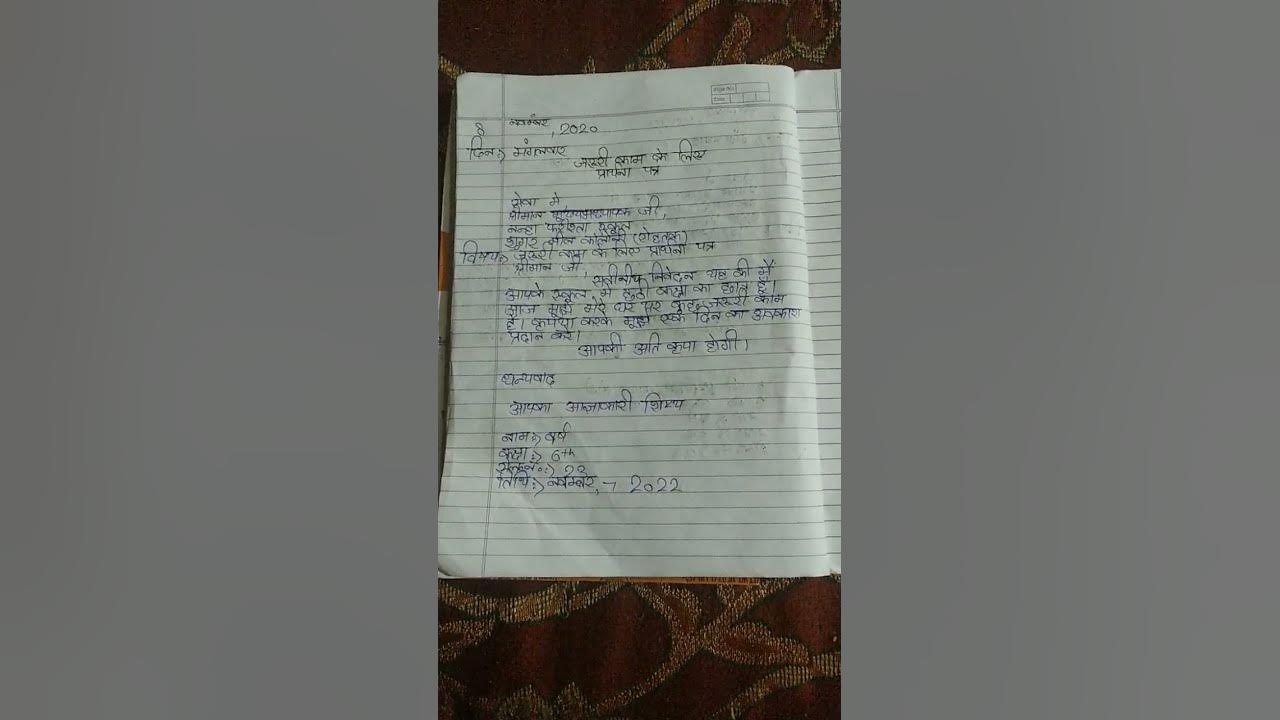 8 नवम्बर, 2020
दिन:> मंगलवार
जरूरी काम के लिए
प्रार्थना पत्र
सेवा में,
श्रीमान जी,
नन्हा फरिश्ता स्कूल
शुगर मील कॉलोनी (रोहतक)
विषय:> जरूरी काम के लिए प्रार्थना पत्र
श्रीमान जी,
निवेदन यह की मैं
आपके स्कूल में छठी कक्षा का छात्र हूँ।
आज मुझे मेरे घर पर कुछ जरूरी काम
है। कृपया करके मुझे एक दिन का अवकाश
प्रदान करे।
आपकी अति कृपा होगी।
धन्यवाद
आपका आज्ञाकारी शिष्य
नाम:> वर्ष
कक्षा:> 6th
तिथि:> नवम्बर, 2022